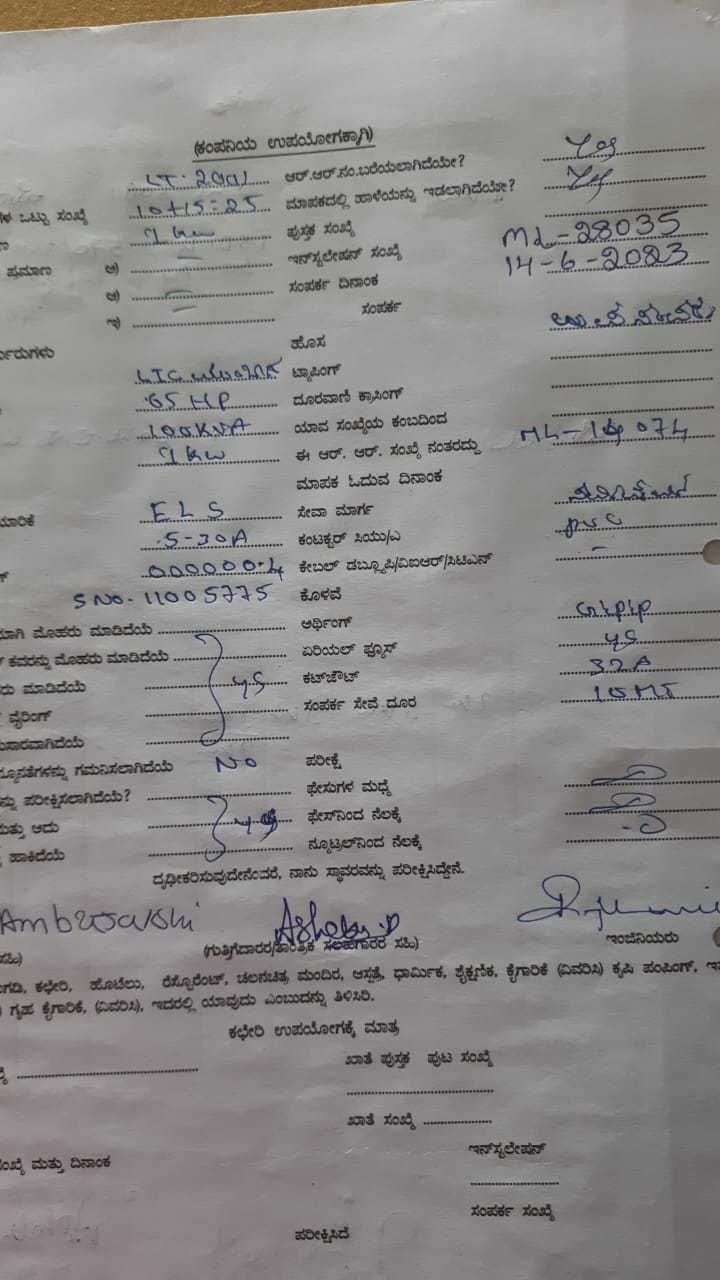 (ಕಂಪನಿಯ ಉಪಯೋಗಕ್ಕಾಗಿ)
ಆರ್.ಆರ್.ನಂ.ಬರೆಯಲಾಗಿದೆಯೇ? Yes
ಗಳ ಒಟ್ಟು ಸಂಖ್ಯೆ 10+15=25 ಮಾಪಕದಲ್ಲಿ ಹಾಳೆಯನ್ನು ಇಡಲಾಗಿದೆಯೇ?
1 KW ಪುಸ್ತಕ ಸಂಖ್ಯೆ
ಪ್ರಮಾಣ ಅ) – ಇನ್‌ಸ್ಟಲೇಷನ್ ಸಂಖ್ಯೆ ML-28035
ಆ) – ಸಂಪರ್ಕ ದಿನಾಂಕ 14-6-2023
ಇ) ಸಂಪರ್ಕ
ಹೊಸ
LTC ಟ್ಯಾಪಿಂಗ್
65 HP ದೂರವಾಣಿ ಕ್ರಾಸಿಂಗ್
100KVA ಯಾವ ಸಂಖ್ಯೆಯ ಕಂಬದಿಂದ
1 KW ಈ ಆರ್. ಆರ್. ಸಂಖ್ಯೆ ನಂತರದ್ದು ML-14074
ಮಾಪಕ ಓದುವ ದಿನಾಂಕ
ಯಾರಿಕೆ ELS ಸೇವಾ ಮಾರ್ಗ
5-30A ಕಂಟಕ್ಟರ್ ಸಿಯು/ಎ PVC
000000.4 ಕೇಬಲ್ ಡಬ್ಲ್ಯೂಪಿ/ವಿಐಆರ್/ಸಿಟಿಎನ್ –
SNO-11005775 ಕೊಳವೆ
ಯಾಗಿ ಮೊಹರು ಮಾಡಿದೆಯೆ ಆರ್ಥಿಂಗ್
ಕವರನ್ನು ಮೊಹರು ಮಾಡಿದೆಯೆ ಏರಿಯಲ್ ಫ್ಯೂಸ್ ys
ರು ಮಾಡಿದೆಯೆ ys ಕಟ್‌ಔಟ್ 32A
ವೈರಿಂಗ್ ಸಂಪರ್ಕ ಸೇವೆ ದೂರ 10MT
ಸಾರವಾಗಿದೆಯೆ
ನ್ಯೂನತೆಗಳನ್ನು ಗಮನಿಸಲಾಗಿದೆಯೆ No ಪರೀಕ್ಷೆ
ನ್ನು ಪರೀಕ್ಷಿಸಲಾಗಿದೆಯೆ? ಫೇಸುಗಳ ಮಧ್ಯೆ
ಮತ್ತು ಅದು ys ಫೇಸ್‌ನಿಂದ ನೆಲಕ್ಕೆ
ಹಾಕಿದೆಯೆ ನ್ಯೂಟ್ರಲ್‌ನಿಂದ ನೆಲಕ್ಕೆ
ದೃಢೀಕರಿಸುವುದೇನೆಂದರೆ, ನಾನು ಸ್ಥಾವರವನ್ನು ಪರೀಕ್ಷಿಸಿದ್ದೇನೆ.
ಸಹಿ) (ಗುತ್ತಿಗೆದಾರರ/ತಾಂತ್ರಿಕ ಸಲಹೆಗಾರರ ಸಹಿ) ಇಂಜಿನಿಯರು
ಗಡಿ, ಕಛೇರಿ, ಹೊಟೆಲು, ರೆಸ್ಟೋರೆಂಟ್, ಚಲನಚಿತ್ರ ಮಂದಿರ, ಆಸ್ಪತ್ರೆ, ಧಾರ್ಮಿಕ, ಶೈಕ್ಷಣಿಕ, ಕೈಗಾರಿಕೆ (ವಿವರಿಸಿ) ಕೃಷಿ ಪಂಪಿಂಗ್,
) ಗೃಹ ಕೈಗಾರಿಕೆ, (ವಿವರಿಸಿ), ಇದರಲ್ಲಿ ಯಾವುದು ಎಂಬುದನ್ನು ತಿಳಿಸಿರಿ.
ಕಛೇರಿ ಉಪಯೋಗಕ್ಕೆ ಮಾತ್ರ
ಖಾತೆ ಪುಸ್ತಕ ಪುಟ ಸಂಖ್ಯೆ
ಖಾತೆ ಸಂಖ್ಯೆ
ಸಂಖ್ಯೆ ಮತ್ತು ದಿನಾಂಕ ಇನ್‌ಸ್ಟಲೇಷನ್
ಸಂಪರ್ಕ ಸಂಖ್ಯೆ
ಪರೀಕ್ಷಿಸಿದೆ